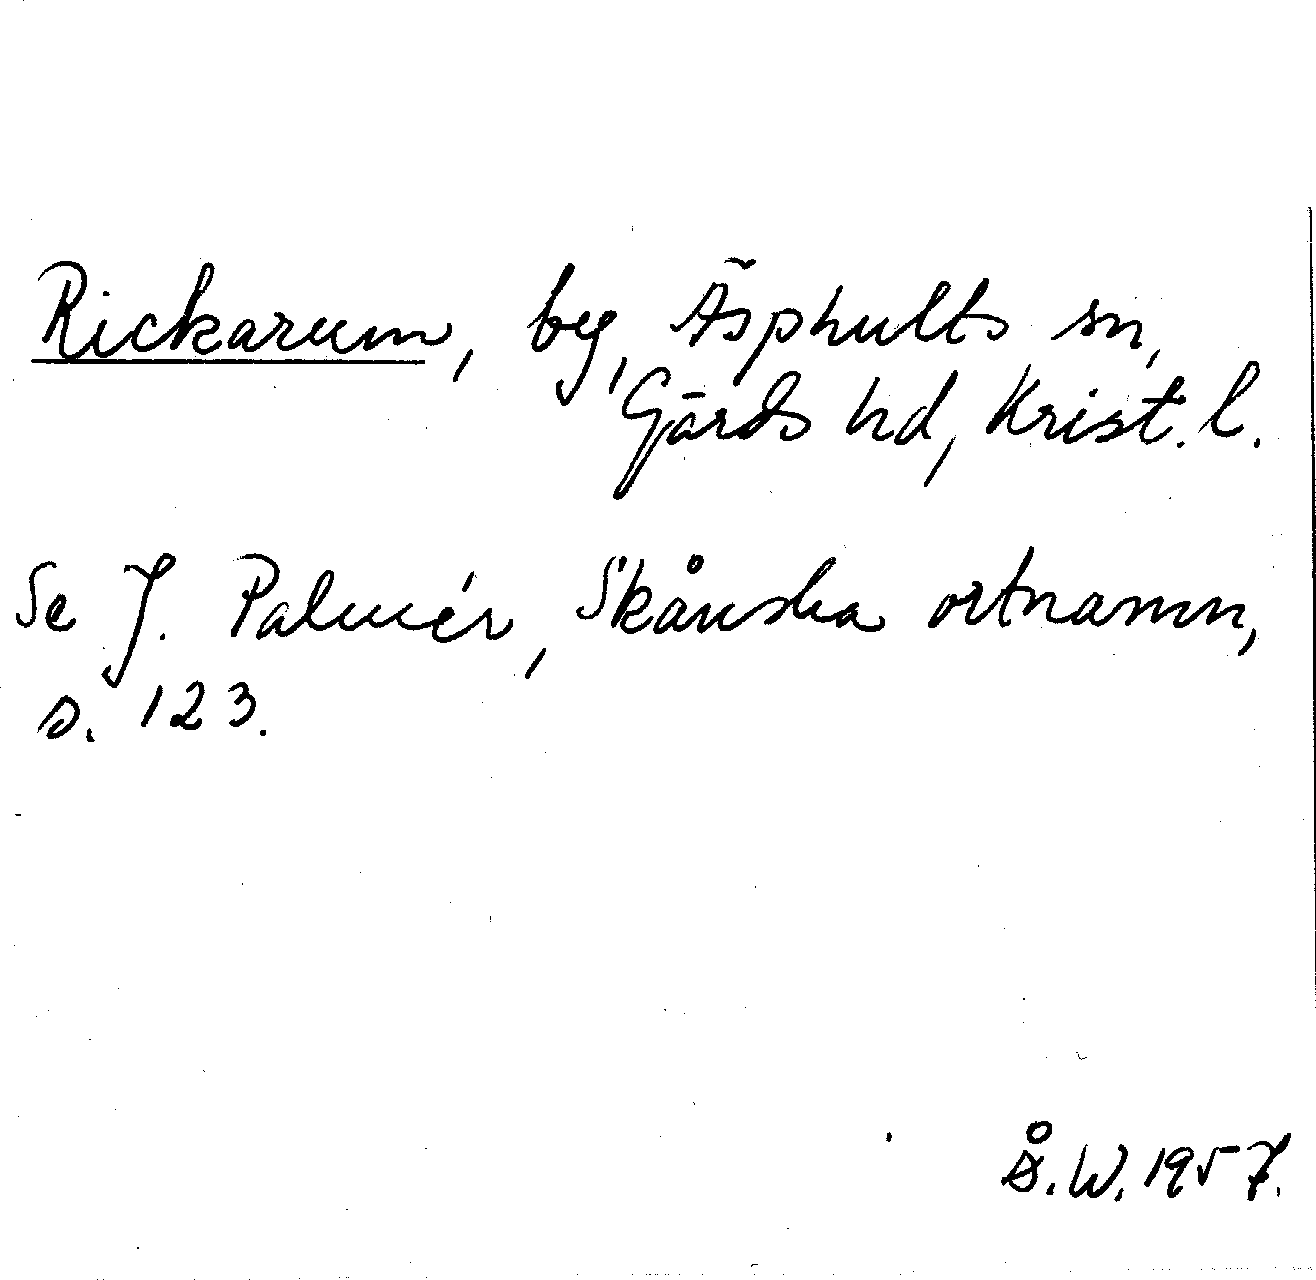 Rickarum, by, Äsphults sn,
Gärds hd, Krist. l.
Se J. Palmér, Skånska ortnamn,
s. 123.
Å.W. 1957.